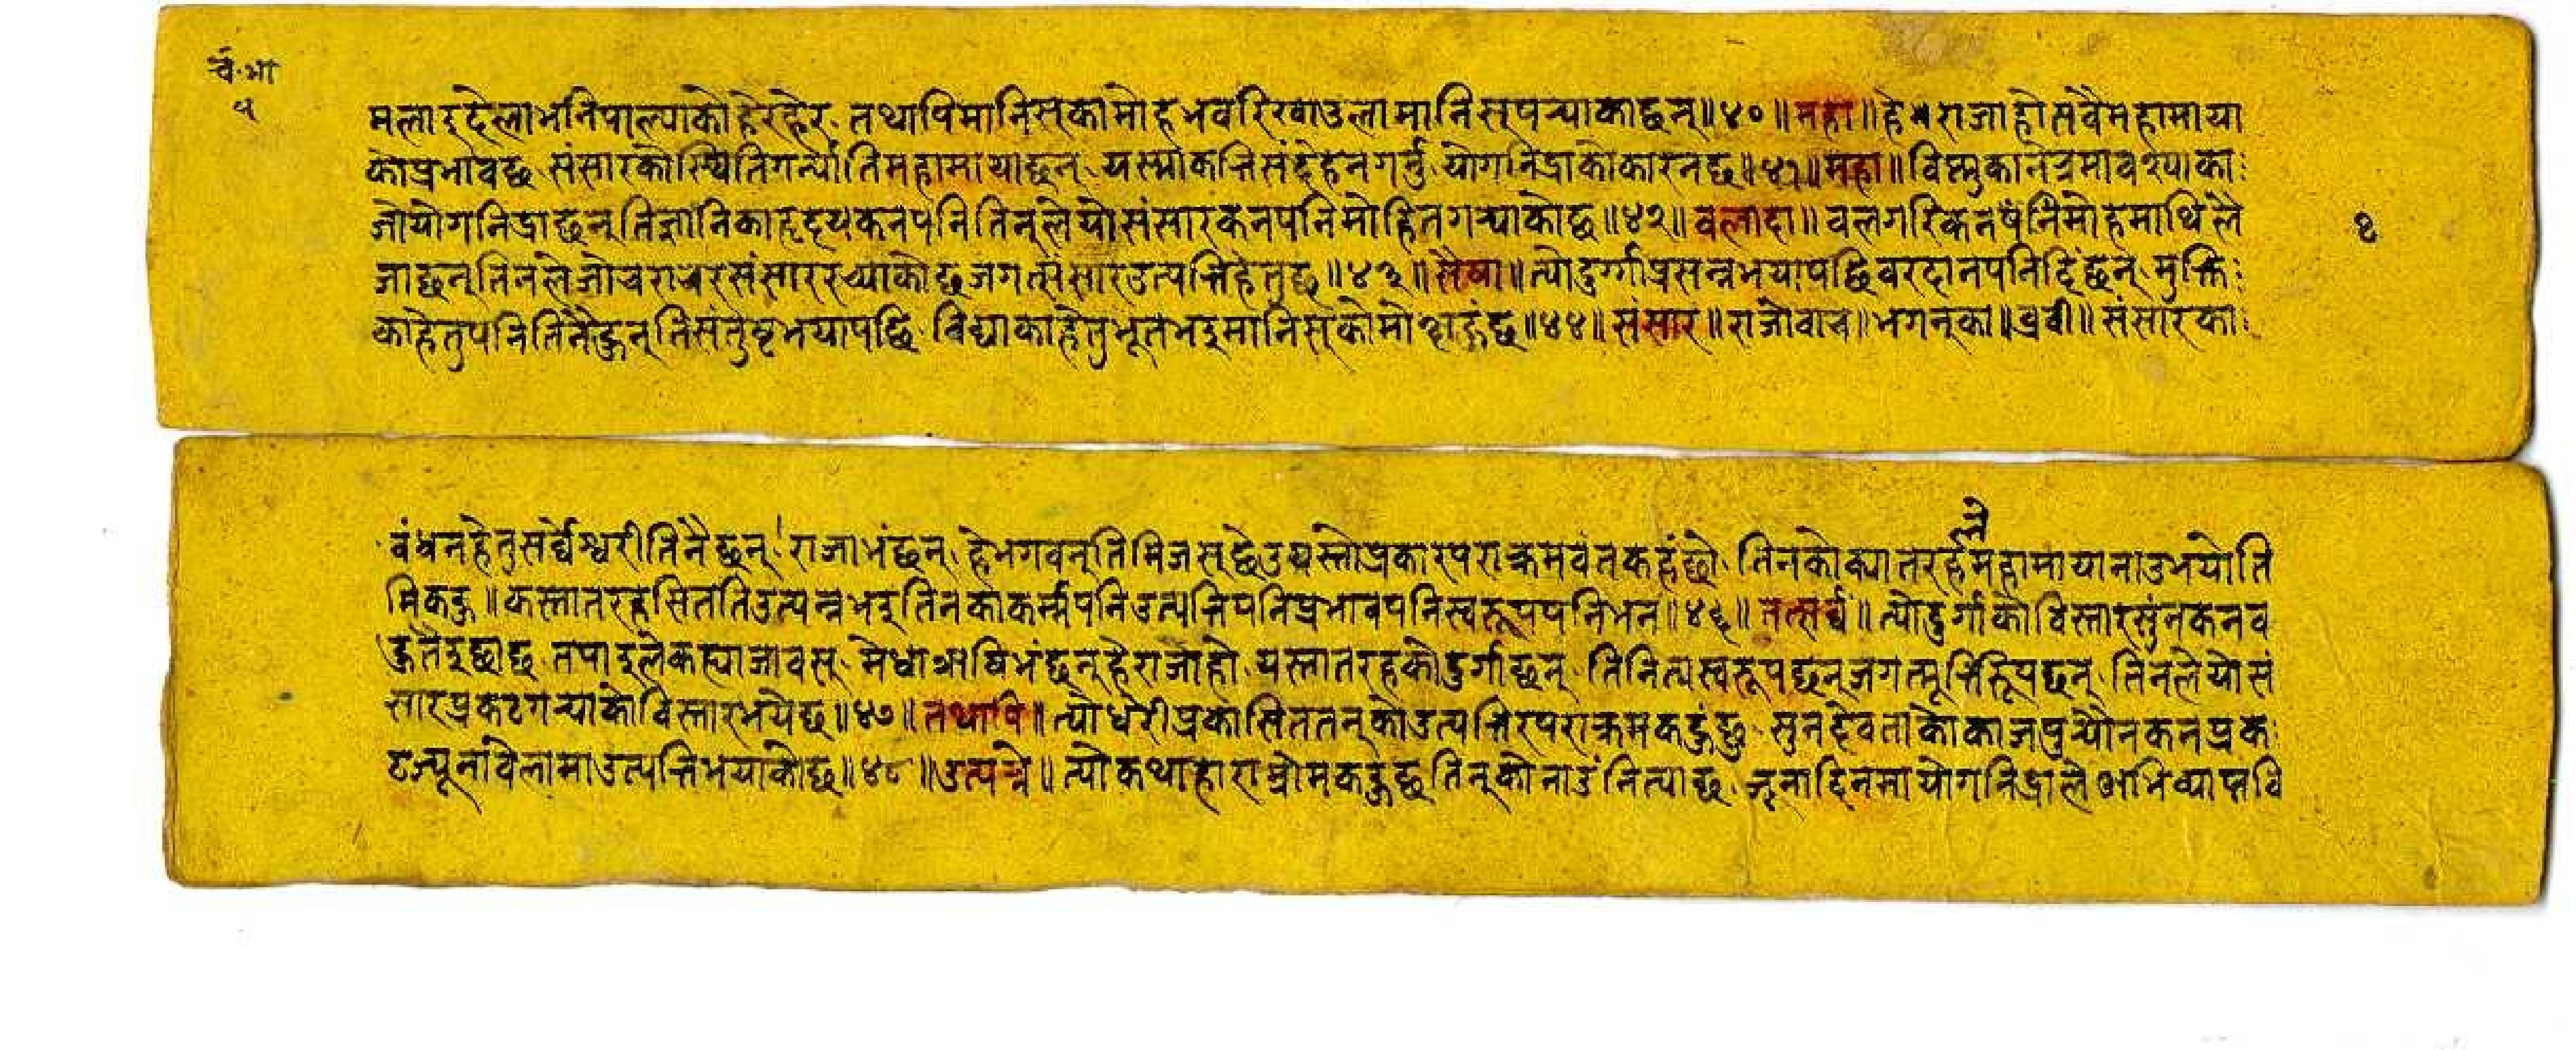 चं.भा
५
मलाइदेलाभनिपाल्याकोहेरहेर तथापिमानिस्कामोहभवरिखाउलामानिस्पर्‍याकाछन्॥४०॥महा॥हेराजाहोसवैमहामाया
कोप्रभावछ संसारकोस्थितिगर्न्यातिमहामायाछन् यस्माकत्तिसंदेहनगर्नु योगनिद्राकोकारनछ॥४१॥महा॥विष्णुकानेत्रमावस्याका
जोयोगनिद्राछन्तिज्ञानिकाहृदयकनपनितिन्‌लेयोसंसारकनपनिमोहितगर्‍याकोछ॥४२॥वलादा॥वलगरिकनपनिमोहमाथिलै
जाछन्तिनलेजोचराचरसंसाररच्याकोछजगत्संसारउत्पत्तिहेतुछ॥४३॥सैषा॥त्योदुर्गाप्रसन्नभयापछिवरदानपनिदिंछन् मुक्ति
काहेतुपनितिनैहुन्‌तिसंतुष्टभयापछि विद्याकाहेतुभूतभइमानिस्कोमोक्षहुंछ॥४४॥संसार॥राजोवाच॥भगन्का॥व्रवी॥संसारका
२
वंधनहेतुसर्व्वेश्वरीतिनैछन् राजाभंछन् हेभगवन्‌तिमिजस्‌छेउयस्तोप्रकारपराक्रमवंतकहंछौ तिनकोक्यातरहलेमहामायानाउभयोति
मिकहु॥कस्तातरहसिततिउत्पन्नभइतिनकाकर्म्मपनिउत्पत्तिपनिप्रभावपनिस्वरूपपनिभन॥४६॥तत्सर्व्व॥त्योदुर्गाकोविस्तारसुंनकनव
हुतैइछाछ तपाइलेकह्याजावस् मेधाऋषिभंछन्‌हेराजाहो यस्तातरहकोदुर्गाछन् तिनित्यस्वरूपछन्‌जगत्मूर्त्तिरूपछन् तिनलेयोसं
सारप्रकटगर्‍याकोविस्तारभयेछ॥४७॥तथापि॥त्योधेरीप्रकारसिततन्‌कोउत्पत्तिरपराक्रमकहुंछु सुनदेवताकोकाजपुर्‍यौनकनप्रक
टज्यूनवेलामाउत्पत्तिभयाकोछ॥४८॥उत्पन्ने॥त्योकथाहाराम्रोमकहुछुतिन्‌कोनाउंनित्याछ जूनादिनमायोगनिद्रालेअभिव्याप्तवि